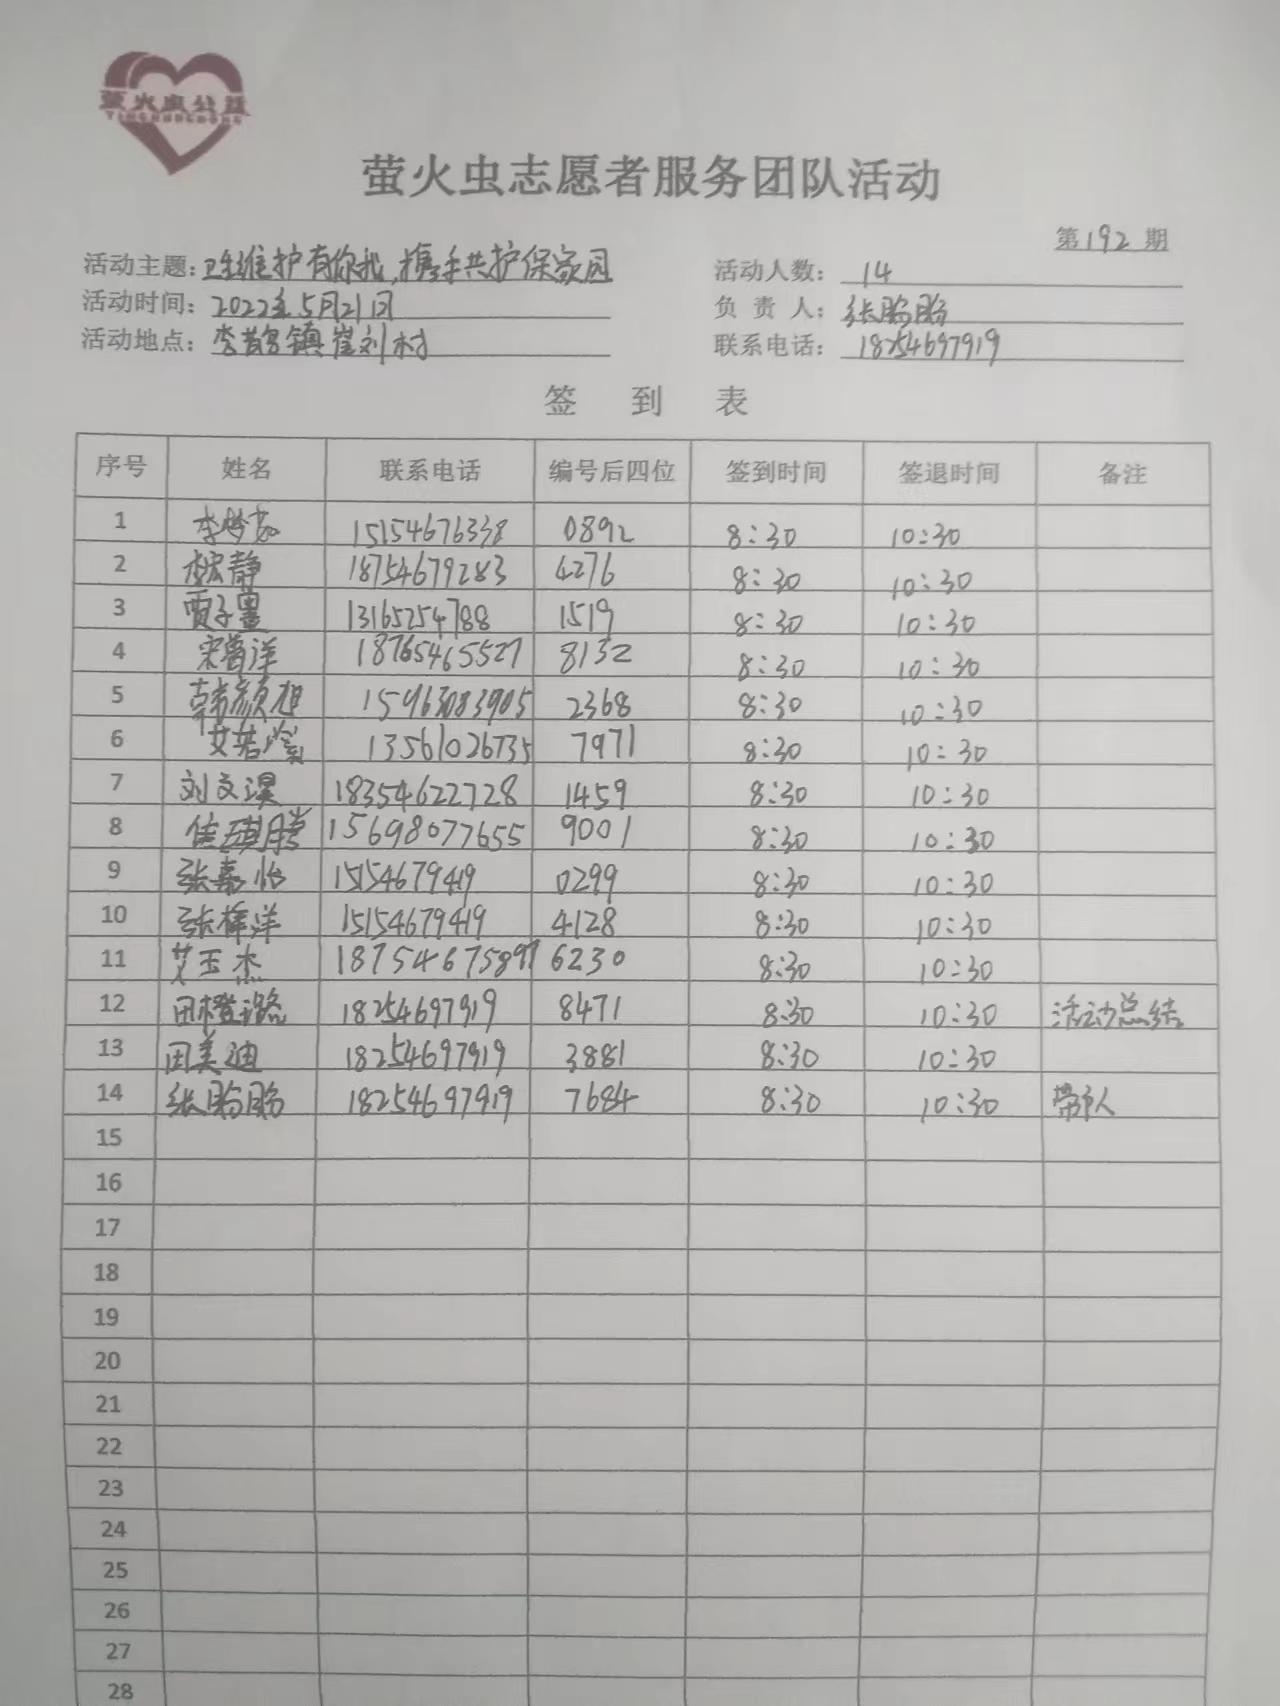 萤火虫公益
YINGHUOCHONG
萤火虫志愿者服务团队活动
第192期
活动主题:卫生维护有你我,携手共护保家园
活动人数:14
活动时间:2022年5月21日
负责人:张鹏鹏
活动地点:李鹊镇崔刘村
联系电话:18254697919
签到表
序号 姓名 联系电话 编号后四位 签到时间 签退时间 备注
1 李梦茹 15154676338 0892 8:30 10:30
2 静 18754679283 4276 8:30 10:30
3 贾子墨 13165254788 1519 8:30 10:30
4 宋鲁洋 18765465527 8132 8:30 10:30
5 韩颜旭 15963083905 2368 8:30 10:30
6 艾若 13561026735 7971 8:30 10:30
7 刘文淏 18354622728 1459 8:30 10:30
8 琪腾 15698077655 9001 8:30 10:30
9 张嘉怡 15154679419 0299 8:30 10:30
10 张梓洋 15154679419 4128 8:30 10:30
11 艾玉杰 18754675897 6230 8:30 10:30
12 田橙潞 18254697919 8471 8:30 10:30 活动总结
13 田美迪 18254697919 3881 8:30 10:30
14 张鹏鹏 18254697919 7684 8:30 10:30 带队人
15
16
17
18
19
20
21
22
23
24
25
26
27
28